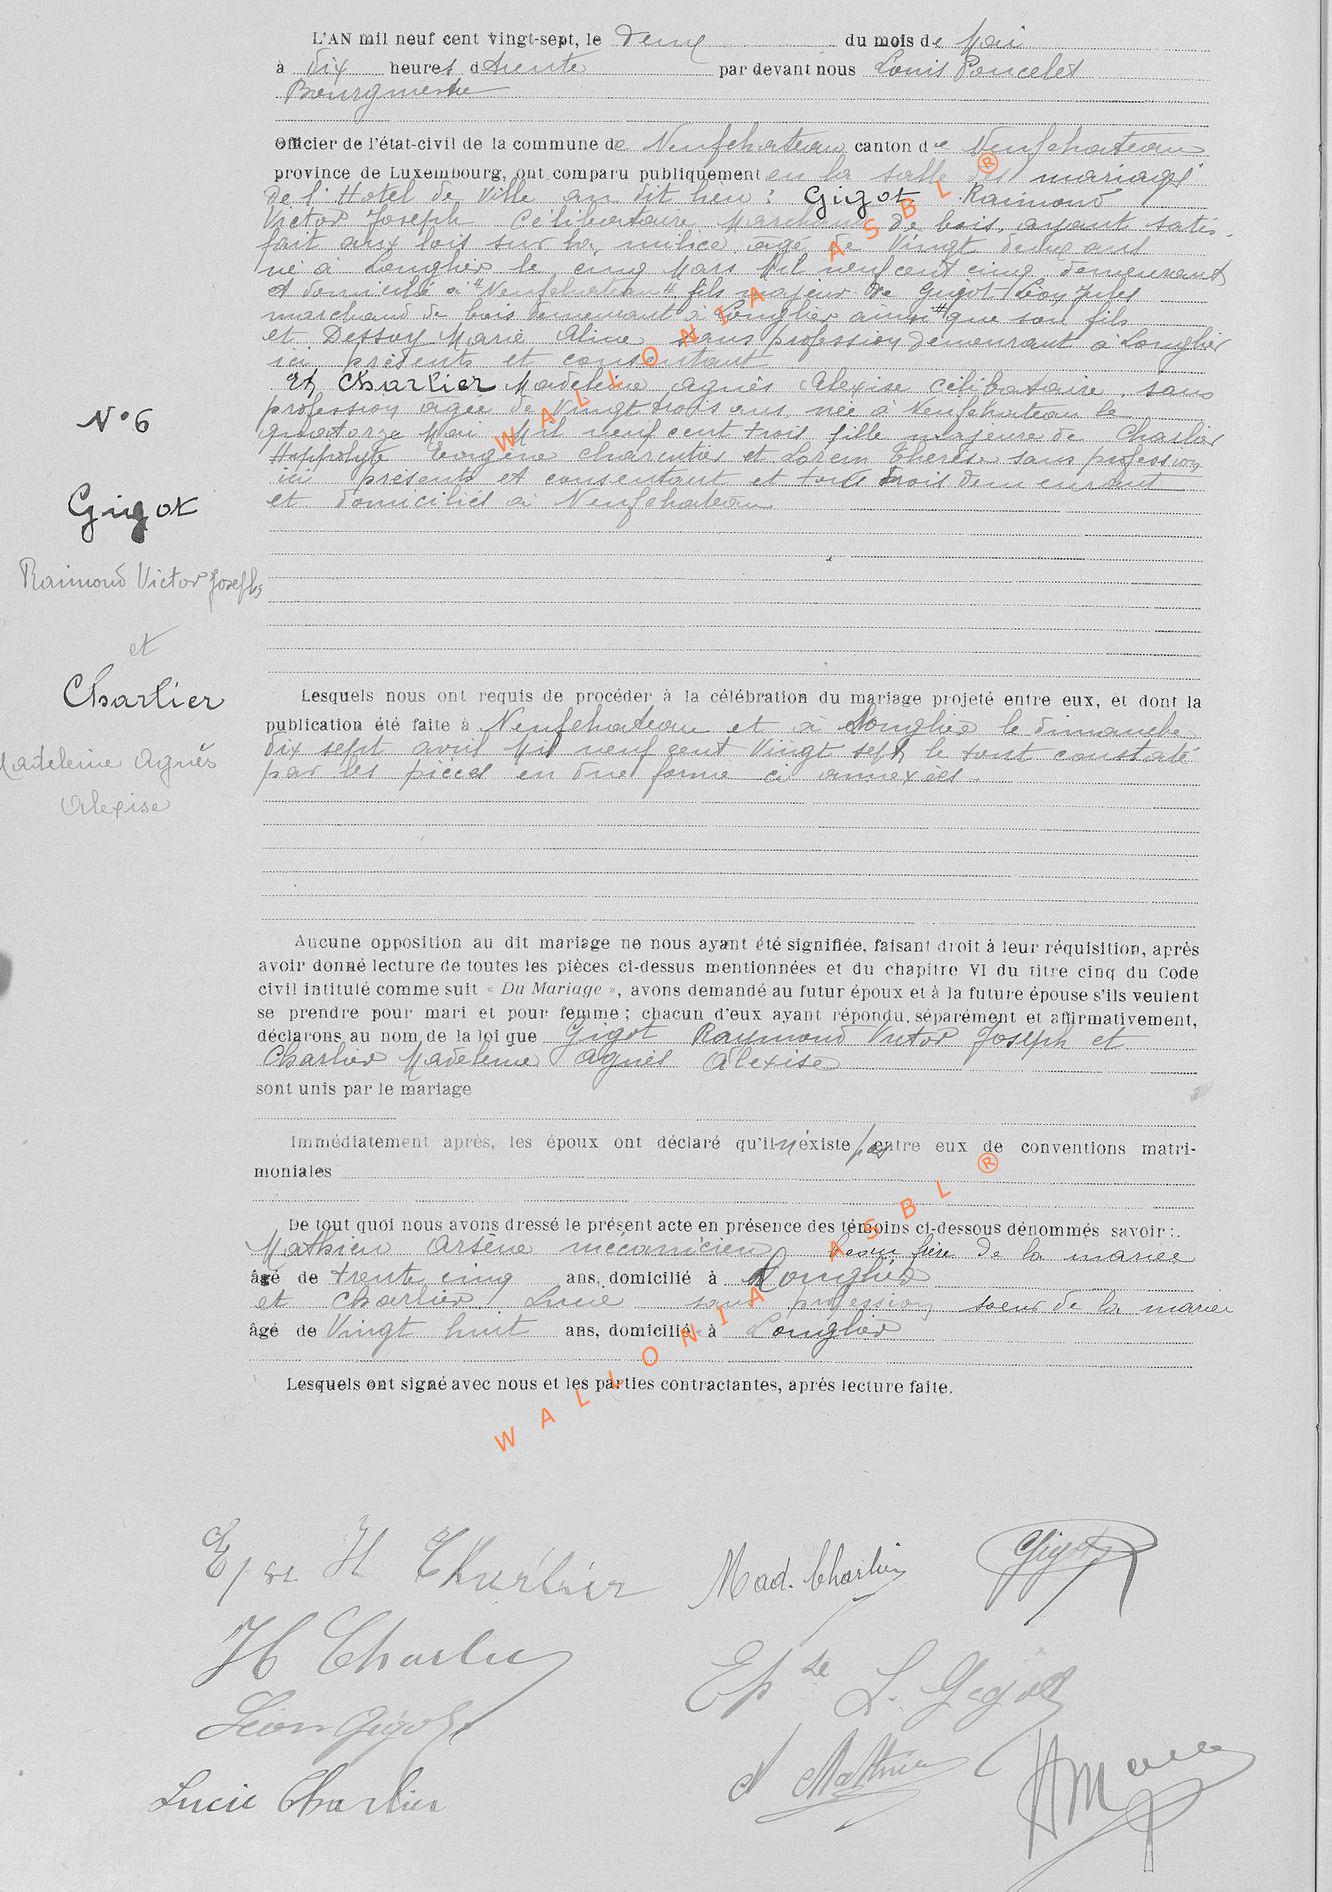 L'AN mil neuf cent vingt-sept, le deux du mois de Mai
à dix heures trente par devant nous Louis Poncelet
Bourgmestre
Officier de l'état-civil de la commune de Neufchateau canton de Neufchateau
province de Luxembourg, ont comparu publiquement en la salle des mariages
de l'Hotel de Ville au dit lieu : Gigot Raimond
Victor Joseph Célibataire Marchand de bois, ayant satis-
fait aux lois sur la milice âgé de Vingt deux ans
né à Longlier le cinq Mars Mil neuf cent cinq demeurant
et domicilié à "Neufchateau" fils majeur de Gigot Léon Jules
marchand de bois demeurant à Longlier ainsi que son fils
et Dessoy Marie Aline sans profession demeurant à Longlier
ici présents et consentant
Et Charlier Madeleine Agnès Alexise célibataire, sans
profession âgée de Vingt trois ans, née à Neufchateau le
quatorze Mai Mil neuf cent trois fille majeure de Charlier
Hippolyte Eugène charcutier et Thérèse sans profession
ici présents et consentant et tous trois demeurant
et domiciliés à Neufchateau
N° 6
Gigot
Raimond Victor Joseph
et
Charlier
Madeleine Agnès
Alexise
Lesquels nous ont requis de procéder à la célébration du mariage projeté entre eux, et dont la
publication été faite à Neufchateau et à Longlier le dimanche
dix sept avril Mil neuf cent Vingt sept, le tout constaté
par les pièces en due forme ci annexées.
Aucune opposition au dit mariage ne nous ayant été signifiée, faisant droit à leur réquisition, après
avoir donné lecture de toutes les pièces ci-dessus mentionnées et du chapitre VI du titre cinq du Code
civil intitulé comme suit « Du Mariage », avons demandé au futur époux et à la future épouse s'ils veulent
se prendre pour mari et pour femme ; chacun d'eux ayant répondu, séparément et affirmativement,
déclarons au nom de la loi que Gigot Raymond Victor Joseph et
Charlier Madeleine Agnès Alexise
sont unis par le mariage
Immédiatement après, les époux ont déclaré qu'il n'existe pas entre eux de conventions matri-
moniales
De tout quoi nous avons dressé le présent acte en présence des témoins ci-dessous dénommés savoir :
Mathieu Arsène mécanicien beau frère de la mariée
âgé de trente cinq ans, domicilié à Longlier
et Charlier Lucie sans profession soeur de la mariée
âgé de Vingt huit ans, domicilié à Longlier
Lesquels ont signé avec nous et les parties contractantes, après lecture faite.
WALLONIA ASBL ®
WALLONIA ASBL ®
H Charlier
Mad. Charlier
Gigot
H Charlier
Epse L. Gigot
Léon Gigot
A Mathieu
Lucie Charlier